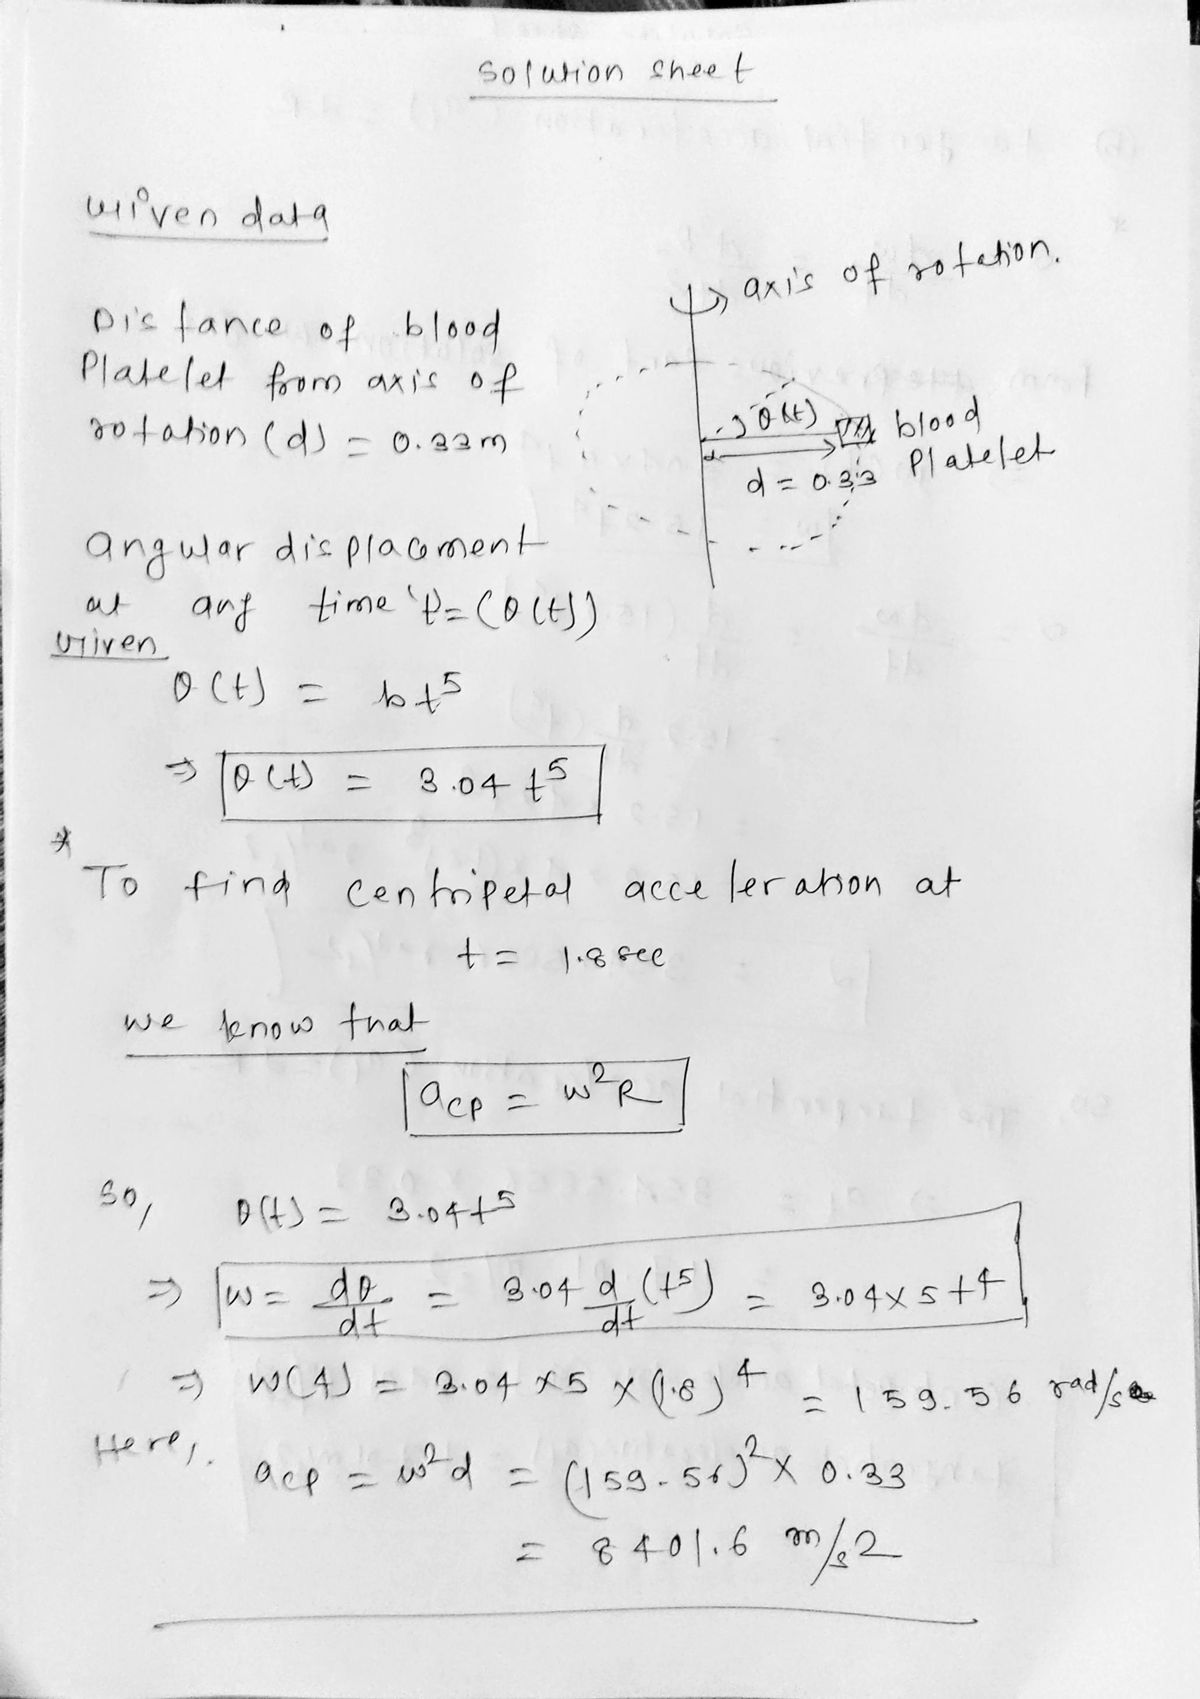 Solution sheet
Given data
axis of rotation.
Distance of blood
Platelet from axis of
rotation (d) = 0.33m
θ(t)
blood
Platelet
d = 0.33
angular displacement
at any time 't' = (θ(t))
Given
θ(t) = bt⁵
⇒ θ(t) = 3.04 t⁵
* To find centripetal acceleration at
t = 1.8 sec
we know that
acp = w²R
so, θ(t) = 3.04t⁵
⇒ w = dθ/dt = 3.04 d/dt (t⁵) = 3.04×5t⁴
⇒ w(4) = 3.04 × 5 × (1.8)⁴ = 159.56 rad/s
Here,
acp = w²d = (159.56)² × 0.33
= 8401.6 m/s2